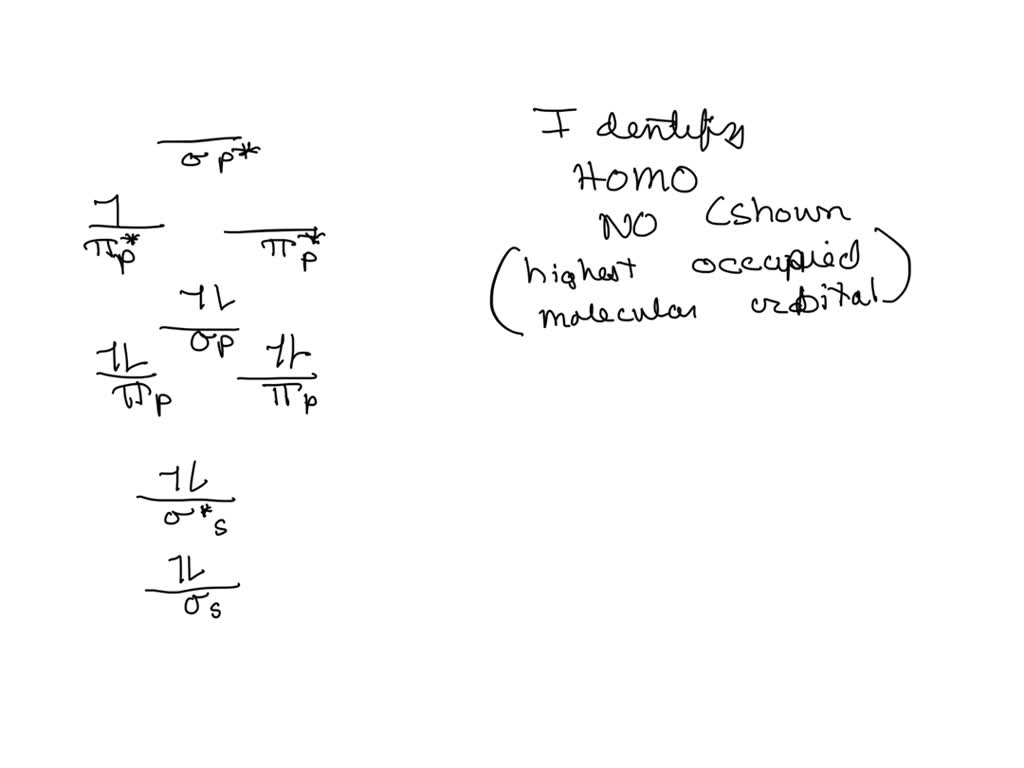 σp*
πp* πp*
1L
σp
1L 1L
πp πp
1L
σ*s
1L
σs
Identify
HOMO
NO (shown
(highest occupied
molecular orbital)